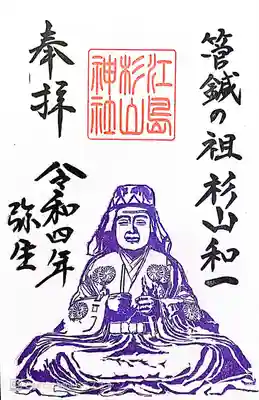 管鍼の祖 杉山和一
江島
杉山
神社
奉拝
令和四年
弥生